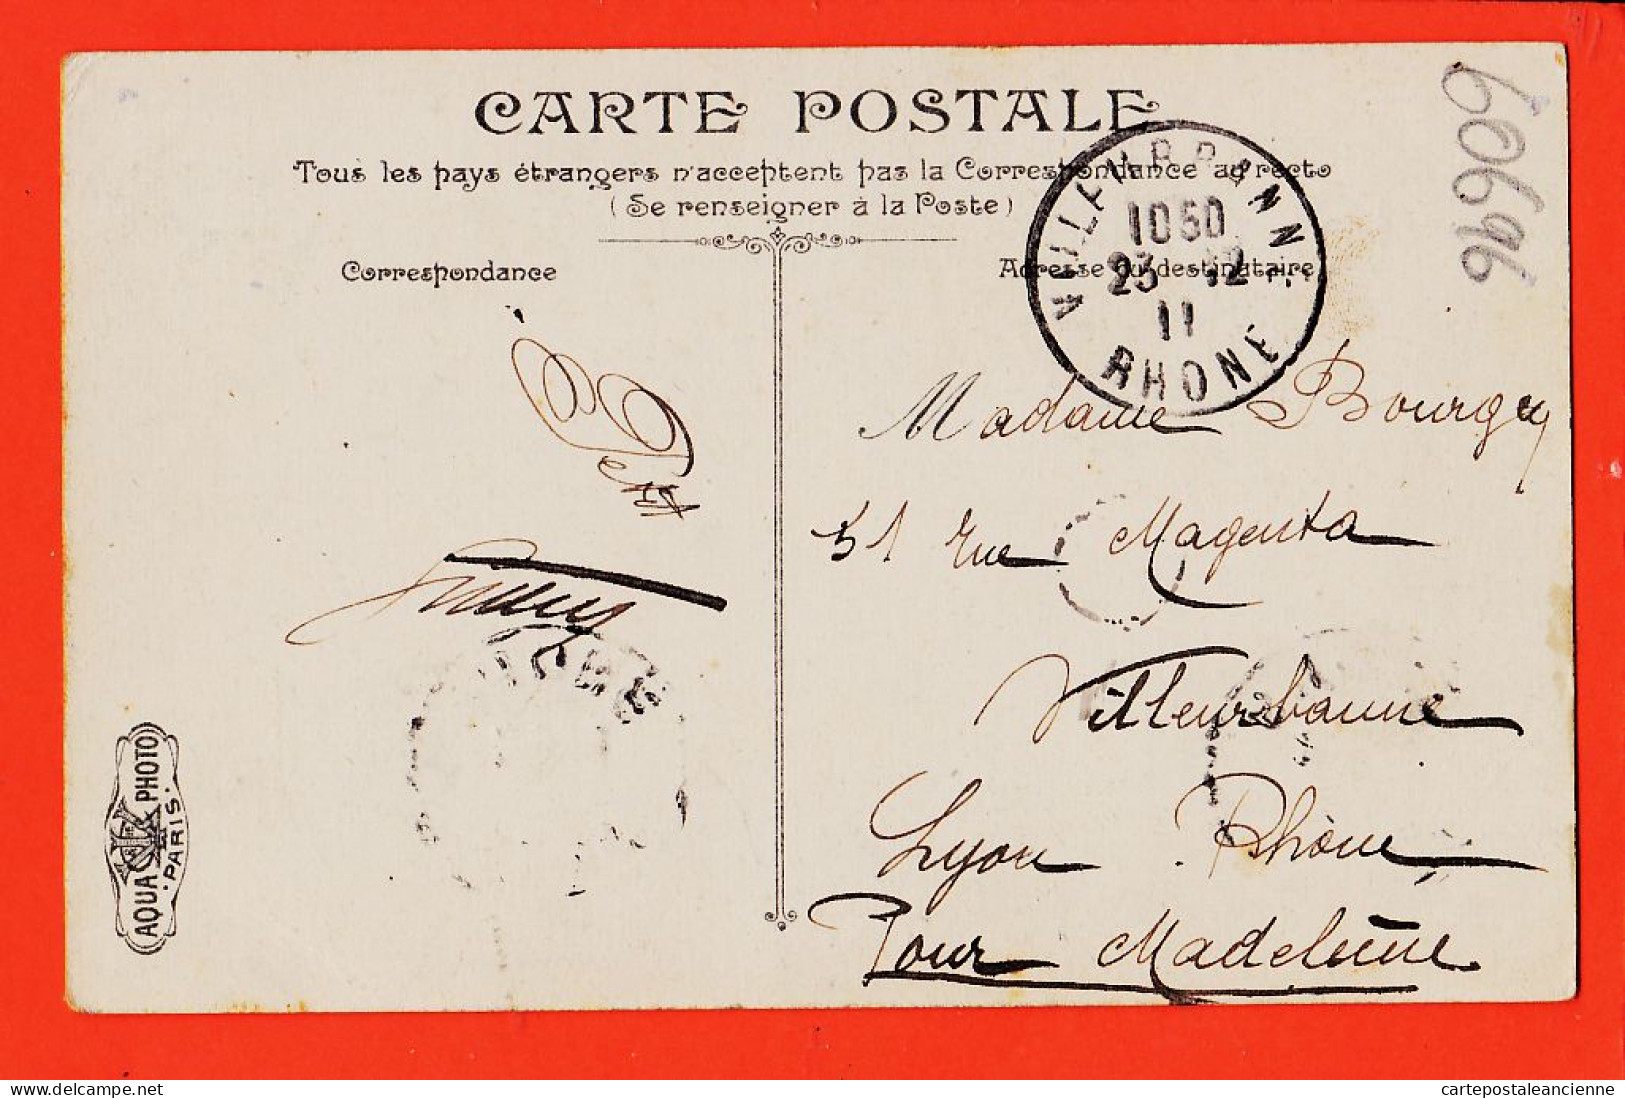 CARTE POSTALE
Tous les pays étrangers n'acceptent pas la Correspondance au recto
(Se renseigner à la Poste)
Correspondance
Adresse du destinataire
VILLEURBANNE
1050
23 12
11
RHONE
60696
Madame Bourgey
51 rue Magenta
Villeurbanne
Lyon Rhône
Pour Madeleine
AQUA PHOTO
PARIS
cartepostaleancienne